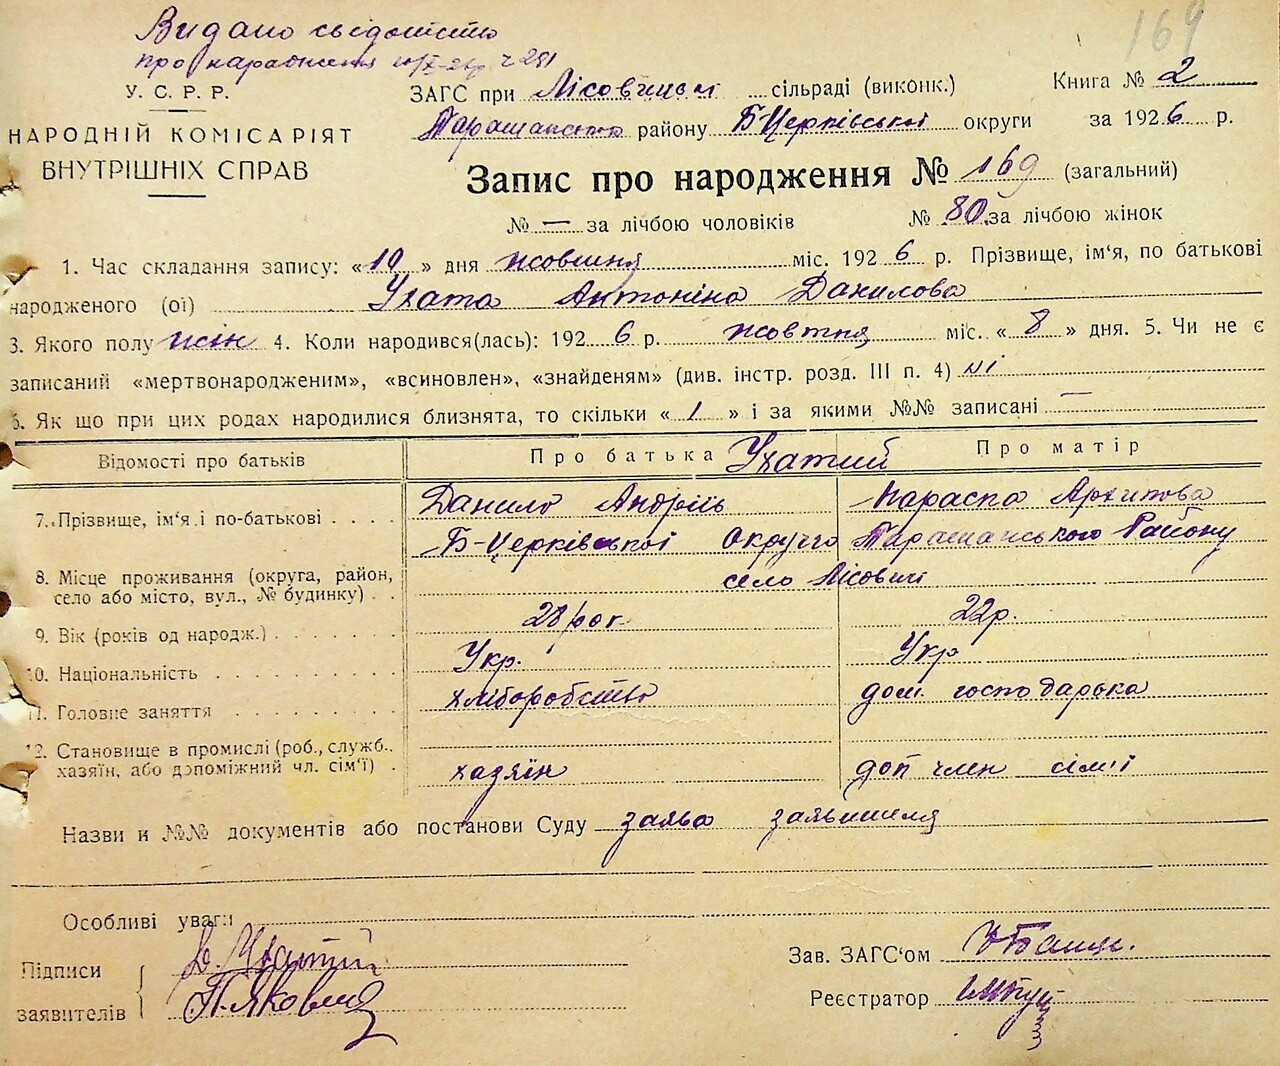 Видано свідотство
про народження 10/X-26р ч 281
169
У. С. Р. Р.
НАРОДНІЙ КОМІСАРІЯТ
ВНУТРІШНІХ СПРАВ
ЗАГС при Лісовицькі сільраді (виконк.) Книга № 2
Таращанського району Б-Церківської округи за 1926 р.
Запис про народження № 169 (загальний)
№ — за лічбою чоловіків № 80 за лічбою жінок
1. Час складання запису: «10» дня жовтня міс. 1926 р. Прізвище, ім'я, по батькові
народженого (ої) Ухата Антоніна Данилова
3. Якого полу жін 4. Коли народився(лась): 1926 р. жовтня міс. «8» дня. 5. Чи не є
записаний «мертвонародженим», «всиновлен», «знайденям» (див. інстр. розд. III п. 4) ні
6. Як що при цих родах народилися близнята, то скільки «1» і за якими №№ записані —
Відомості про батьків Про батька Ухатий Про матір
7. Прізвище, ім'я і по-батькові . . . . Данило Андрій Параска Архипова
Б-Церківської Округи Таращанського Району
8. Місце проживання (округа, район, село Лісовичі
село або місто, вул., № будинку) . .
9. Вік (років од народж.) . . . . . . . 28 рок 22 р.
10. Національність . . . . . . . . . . Укр. Укр
11. Головне заняття . . . . . . . . . хліборобство дом господарька
12. Становище в промислі (роб., служб.,
хазяїн, або допоміжний чл. сім'ї) . хазяїн доп член сім'ї
Назви и №№ документів або постанови Суду заява заявителя
Особливі уваги
Підписи Д. Ухатий Зав. ЗАГС'ом
заявителів П. Яковлів Реєстратор